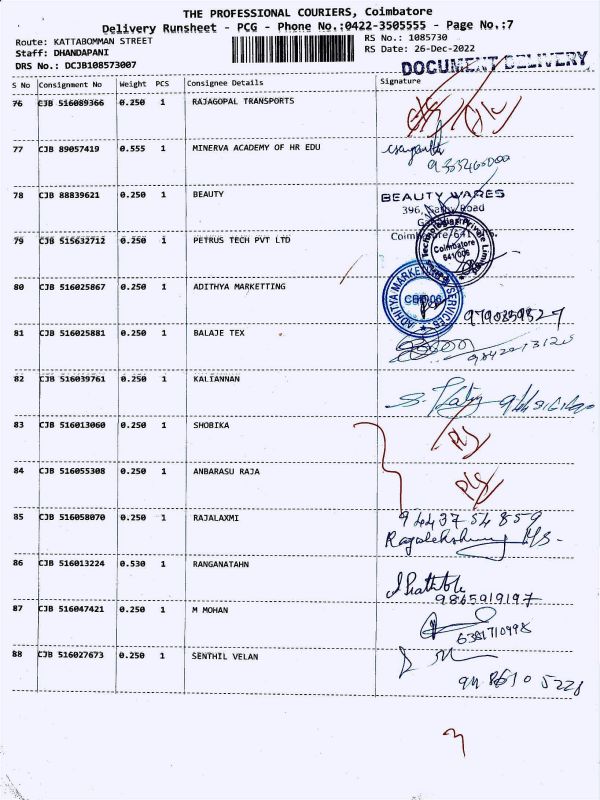 THE PROFESSIONAL COURIERS, Coimbatore
Delivery Runsheet - PCG - Phone No.:0422-3505555 - Page No.:7
Route: KATTABOMMAN STREET RS No.: 1085730
Staff: DHANDAPANI RS Date: 26-Dec-2022
DRS No.: DCJB108573007 DOCUMENT DELIVERY
S No Consignment No Weight PCS Consignee Details Signature
76 CJB 516089366 0.250 1 RAJAGOPAL TRANSPORTS
77 CJB 89057419 0.555 1 MINERVA ACADEMY OF HR EDU
78 CJB 88839621 0.250 1 BEAUTY BEAUTY WARES
396, Sathy Road
79 CJB 515632712 0.250 1 PETRUS TECH PVT LTD
Technologies Private Limited
Coimbatore
641 006
80 CJB 516025867 0.250 1 ADITHYA MARKETTING
ADHITYA MARKETING SERVICES
CBE-06
81 CJB 516025881 0.250 1 BALAJE TEX
82 CJB 516039761 0.250 1 KALIANNAN
83 CJB 516013060 0.250 1 SHOBIKA
84 CJB 516055308 0.250 1 ANBARASU RAJA
85 CJB 516058070 0.250 1 RAJALAXMI 9443754859
86 CJB 516013224 0.530 1 RANGANATAHN
9865919197
87 CJB 516047421 0.250 1 M MOHAN
6381710998
88 CJB 516027673 0.250 1 SENTHIL VELAN